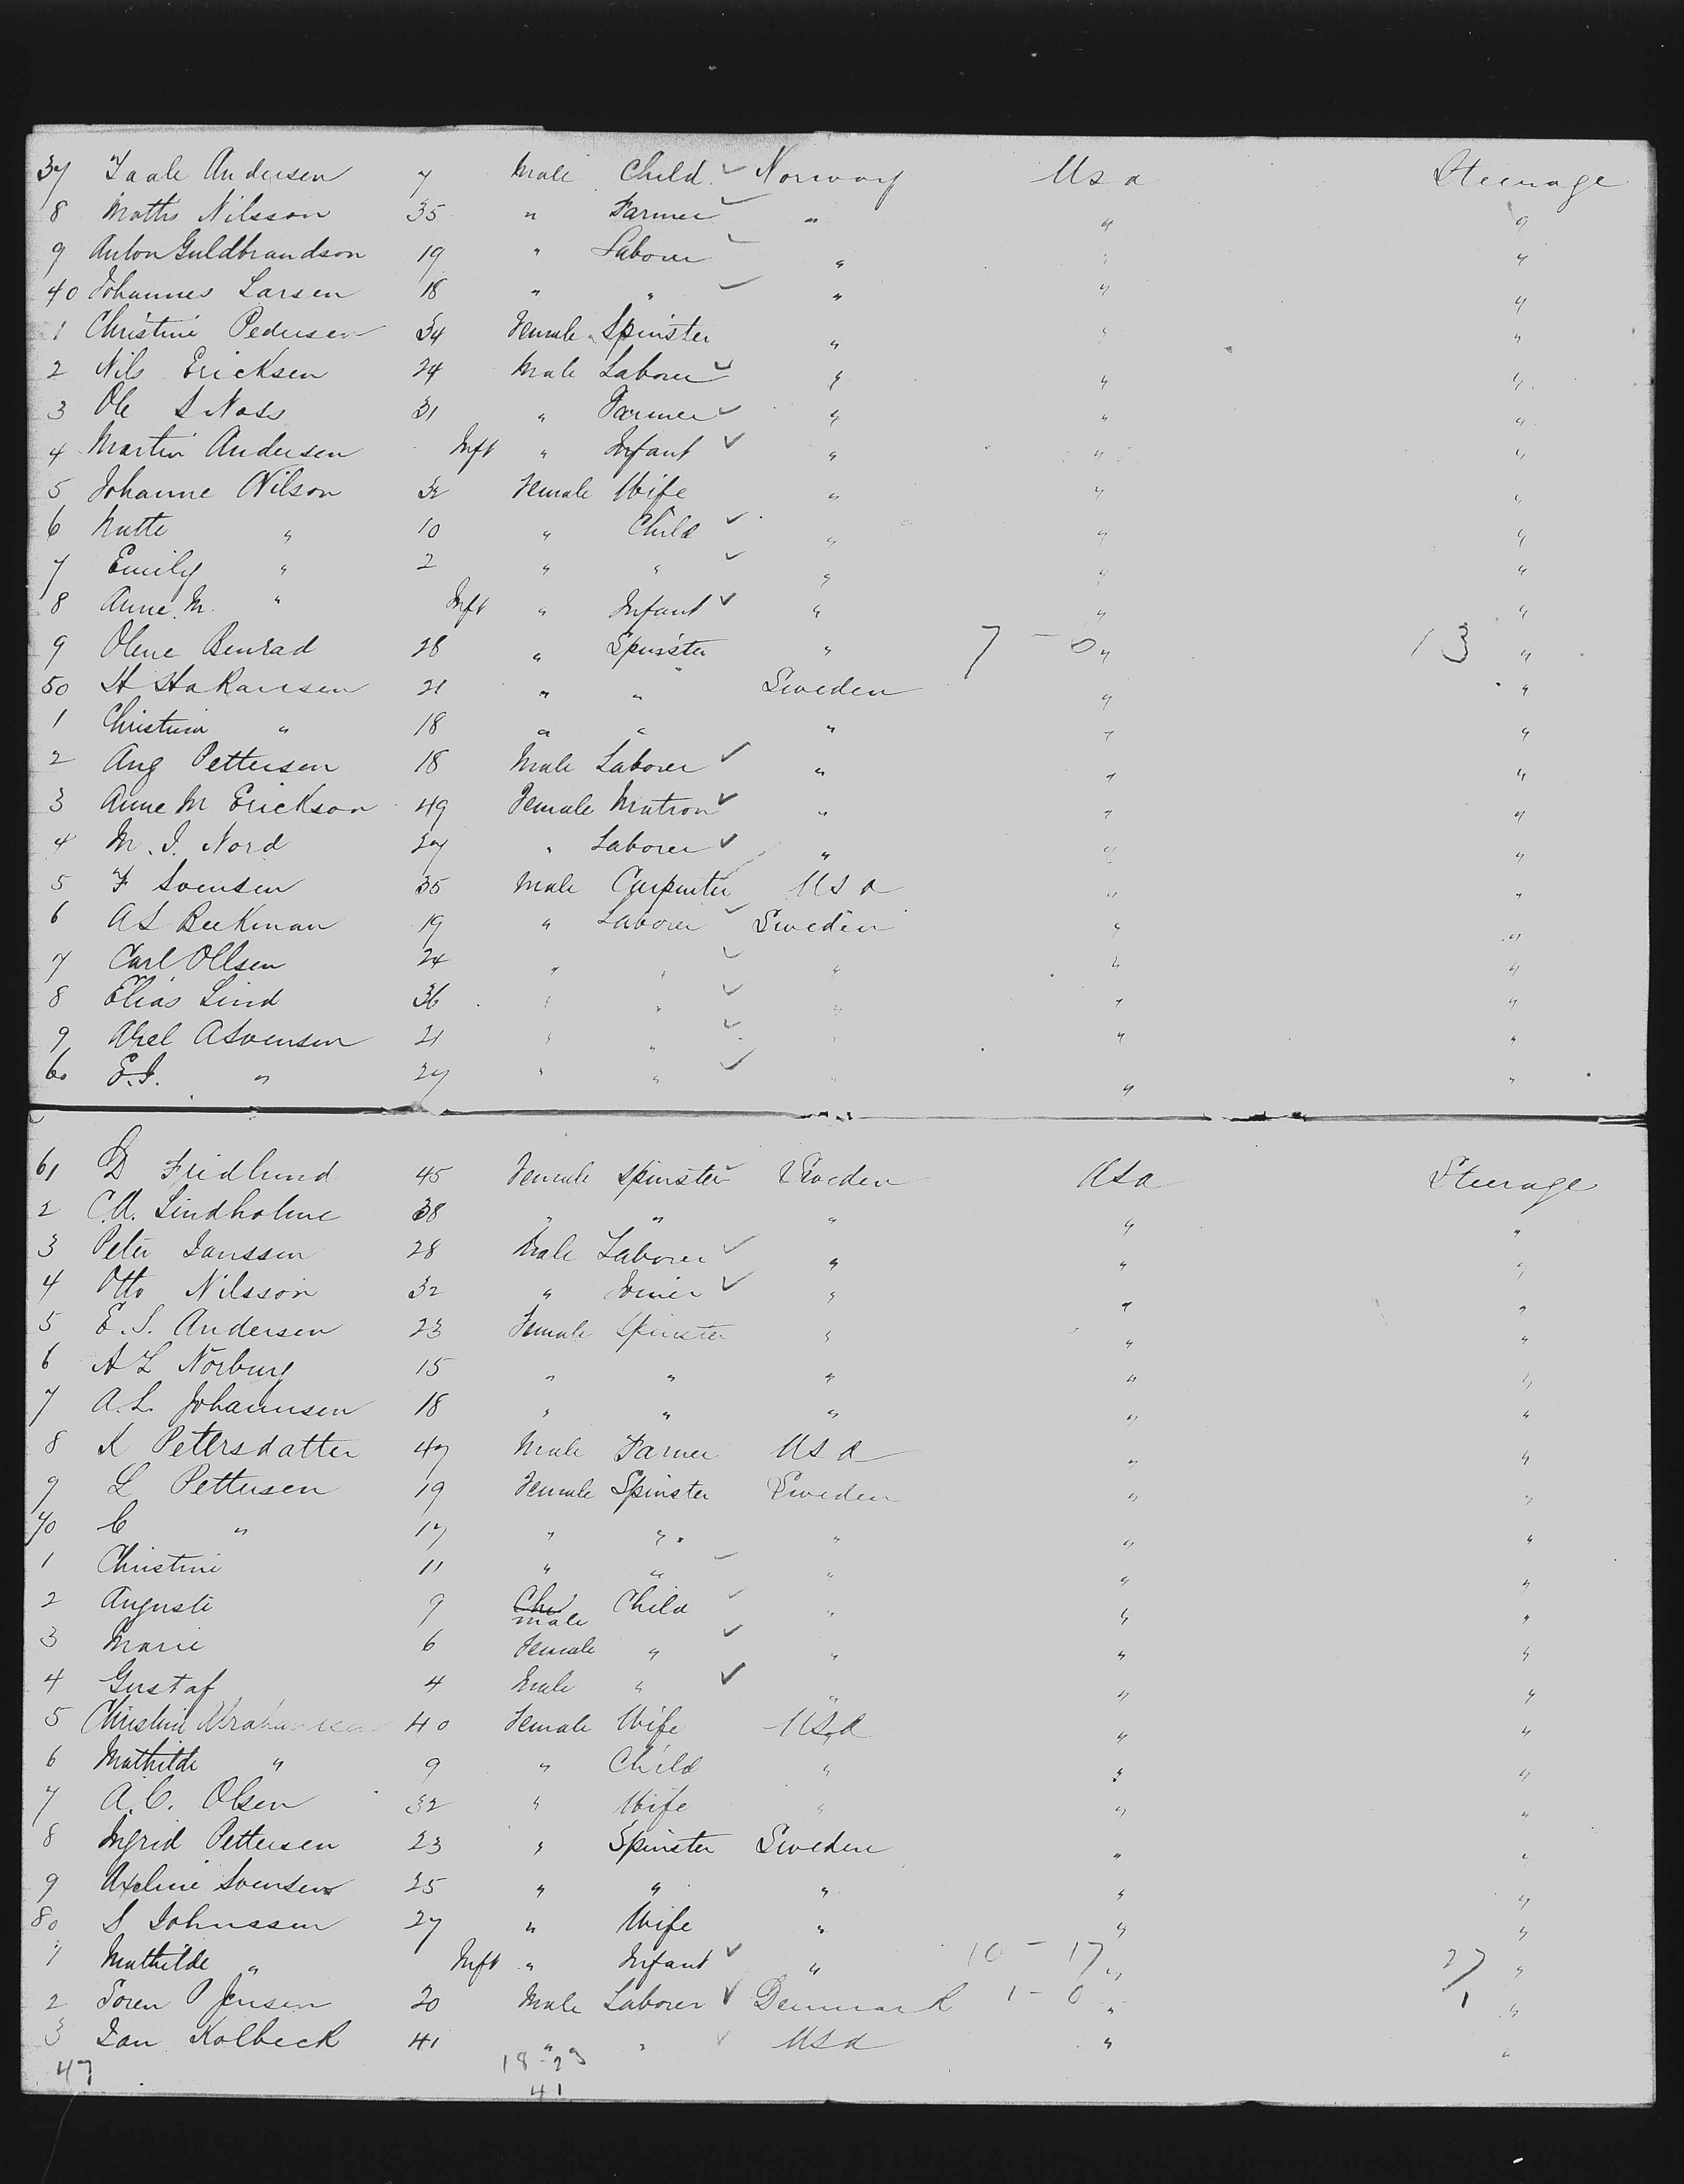 37 Taale Andersen 7 Male Child ✓ Norway Usa Steerage
8 Maths Nilsson 35 " Farmer ✓ " " "
9 Anton Guldbrandson 19 " Laborer ✓ " " "
40 Johannes Larsen 18 " " ✓ " " "
1 Christine Pedersen 34 Female Spinster " " "
2 Nils Ericksen 24 Male Laborer ✓ " " "
3 Ole S Ness 31 " Farmer ✓ " " "
4 Martin Andersen Inft " Infant ✓ " " "
5 Johanne Nilson 32 Female Wife " " "
6 " 10 " Child ✓ " " "
7 Emily " 2 " " ✓ " " "
8 Anne M. " Inft " Infant ✓ " " "
9 Olene 28 " Spinster " 7 - 6 " 13 "
50 H Hakansen 21 " " Sweden " "
1 Christina " 18 " " " " "
2 Aug Pettersen 18 Male Laborer ✓ " " "
3 Anne M Erickson 49 Female Matron ✓ " " "
4 M. I. Nord 27 " Laborer ✓ " " "
5 F Svensen 35 Male Carpenter Usa " "
6 A S Beckman 19 " Laborer ✓ Sweden " "
7 Carl Ollsen 24 " " ✓ " " "
8 Elias Lind 36 " " ✓ " " "
9 Axel A Svensen 21 " " ✓ " " "
60 E.I. " 27 " " ✓ " " "
61 D Fridlund 45 Female Spinster Sweden Usa Steerage
2 C.A. Lindholme 38 " " " " "
3 Peter Janssen 28 Male Laborer ✓ " " "
4 Otto Nilsson 32 " Joiner ✓ " " "
5 E. S. Andersen 23 Female Spinster " " "
6 A L Norburg 15 " " " " "
7 A. L. Johannsen 18 " " " " "
8 K Petersdatter 47 Male Farmer Usa " "
9 L Pettersen 19 Female Spinster Sweden " "
70 C " 17 " " " " "
1 Christine 11 " " ✓ " " "
2 Auguste 9 Chi male Child ✓ " " "
3 Marie 6 Female " ✓ " " "
4 Gustaf 4 Male " ✓ " " "
5 Christine Abrahamsen 40 Female Wife Usa " "
6 Mathilde " 9 " Child " " "
7 A. C. Olsen 32 " Wife " " "
8 Ingrid Pettersen 23 " Spinster Sweden " "
9 Axeline Svensen 25 " " " " "
80 S Johnssen 27 " Wife " " "
1 Mathilde " Inft " Infant ✓ " 10 - 17 " 27 "
2 Soren P Jensen 20 Male Laborer ✓ Denmark 1 - 0 " 1 "
3 Jan Kolbeck 41 " " ✓ Usa " "
47 18-23
41